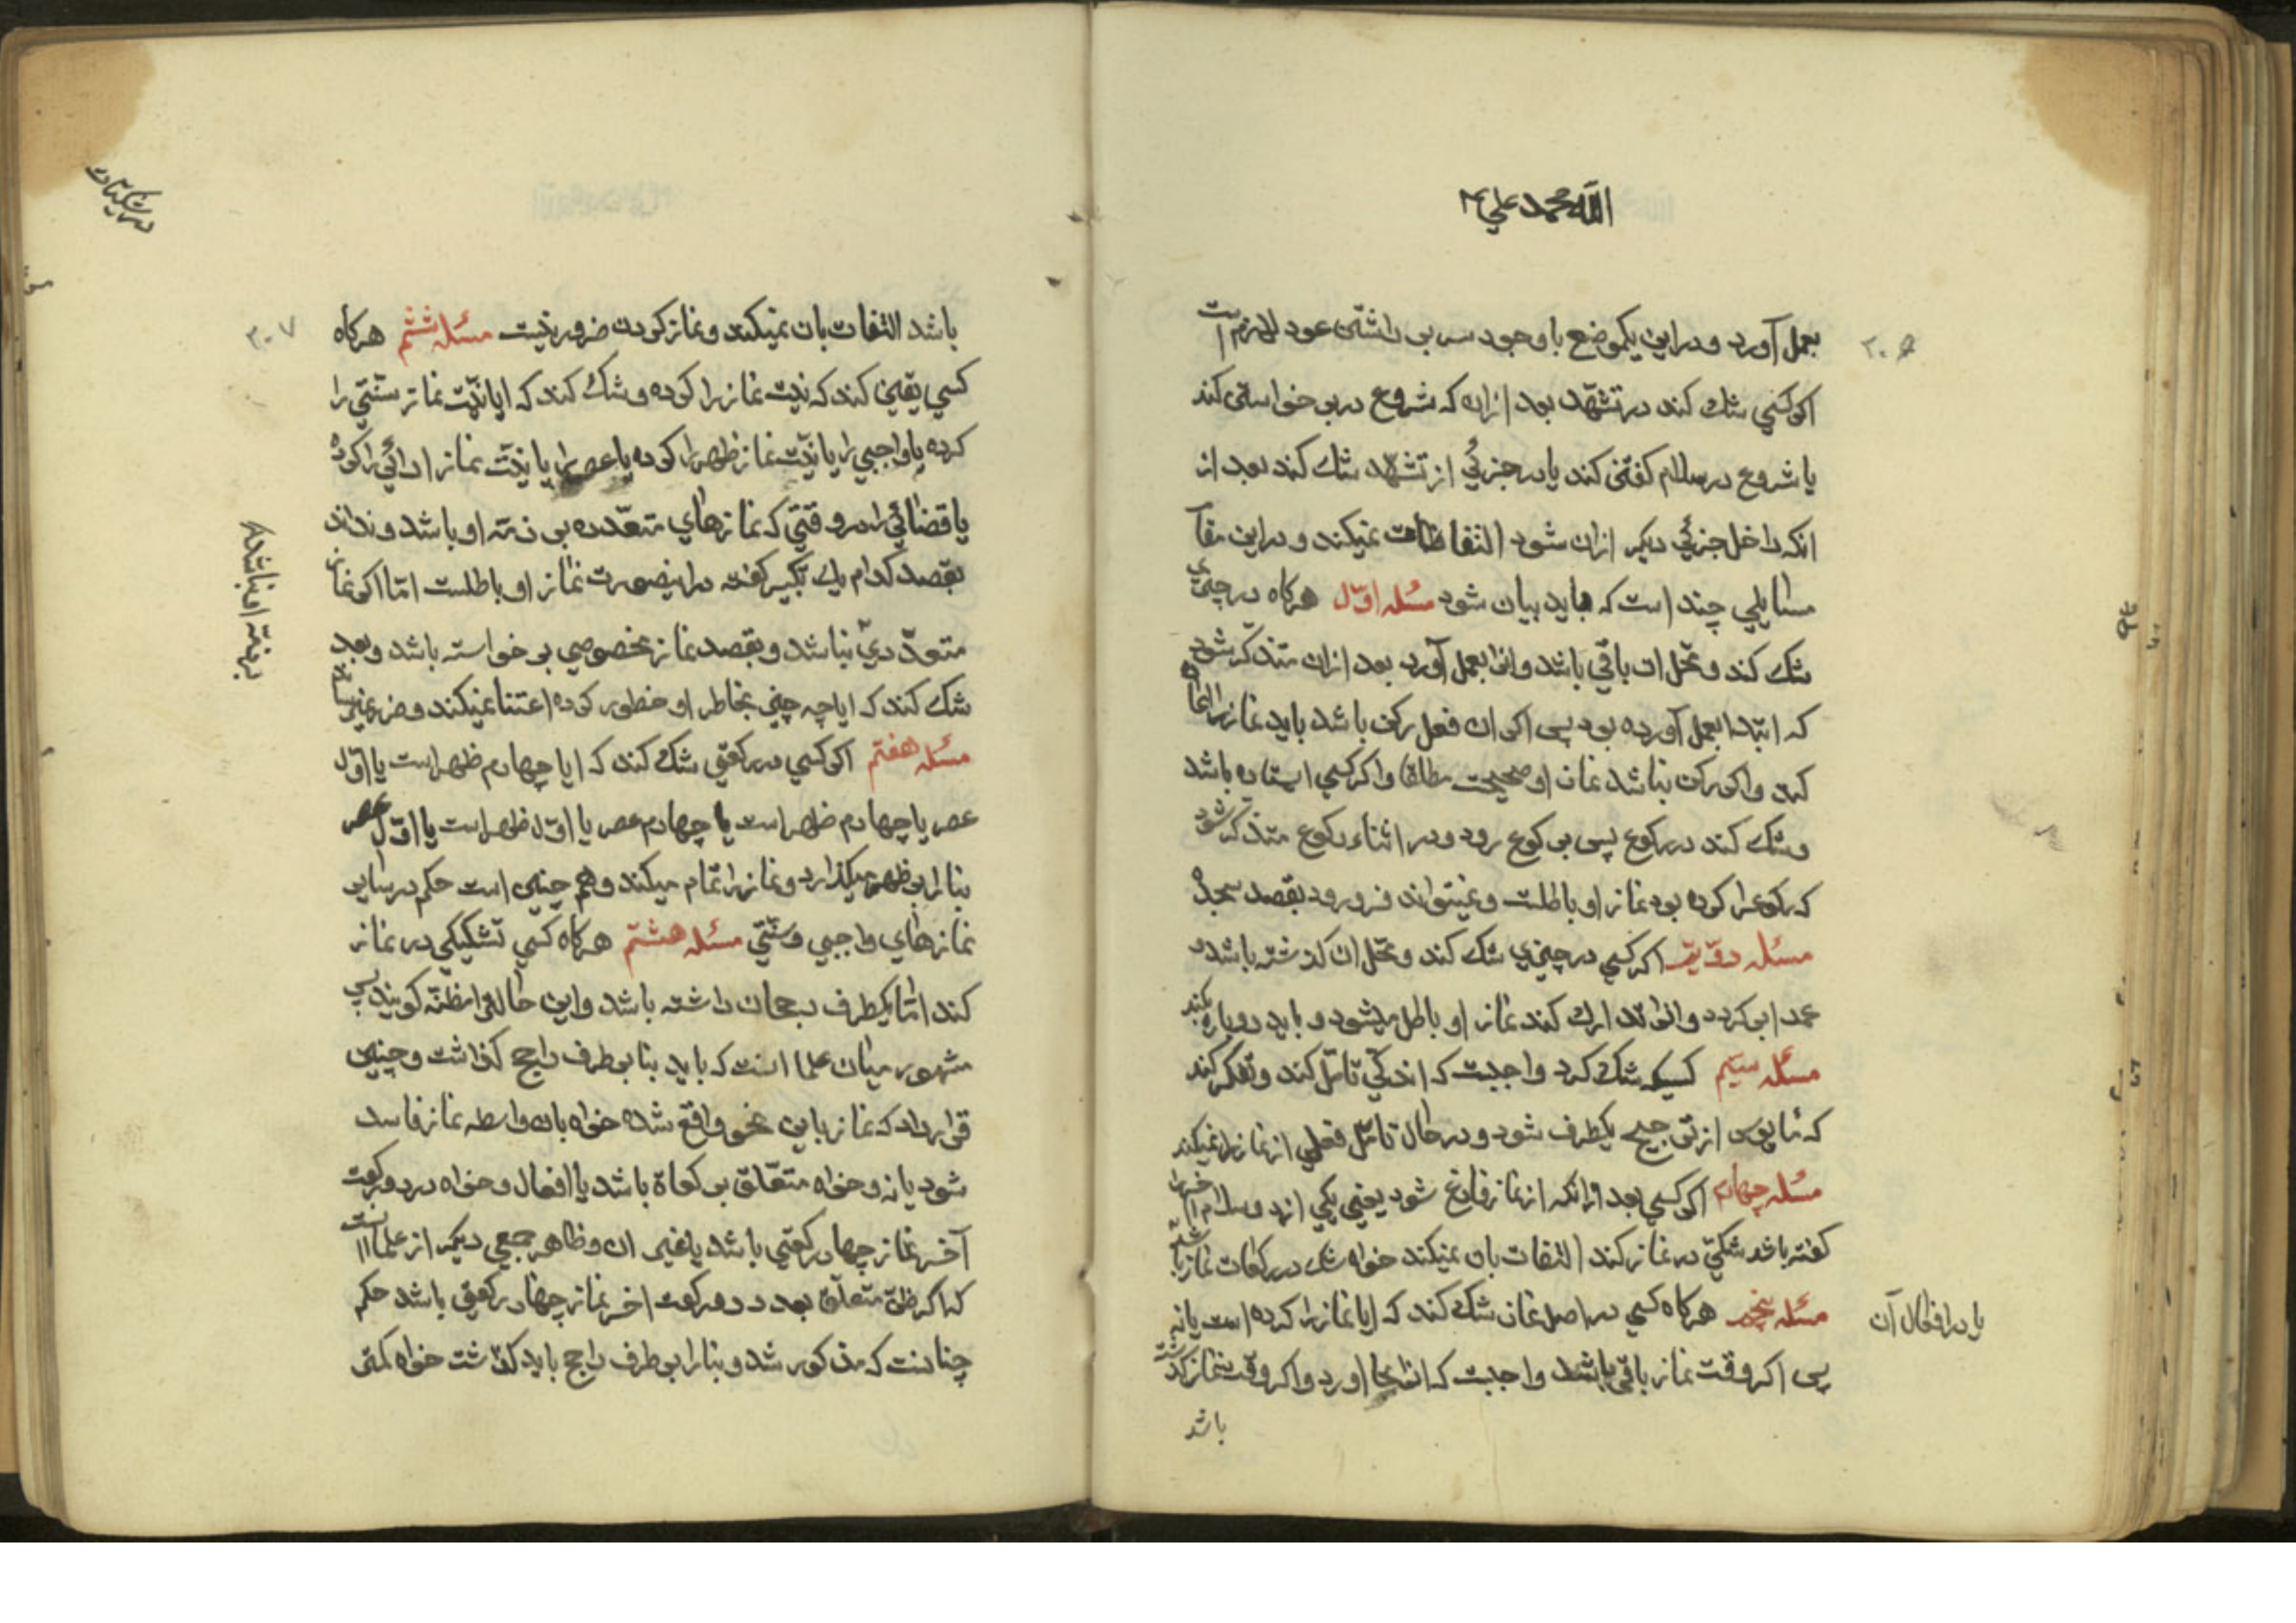 الله محمد علی
بعمل آورد و در این یکموضع با وجود سر بر داشتن عود لازم است
اکر کسی شک کند در تشهّد بعد ازان که شروع در برخواستن کند
یا شروع در سلام کفتن کند یا در جزئی از تشهّد شک کند بعد از
انکه داخل جزئی دیکر ازان شود التفات نمیکند و در این مقام
مسایلی چند است که باید بیان شود مسئله اوّل هرکاه در چیزی
شک کند و محل ان باقی باشد و انرا بعمل آورد بعد ازان متذکر شود
که ابتدا بعمل آورده بود پس اکر ان فعل رکن باشد باید نماز را اعاده
کند و اکر رکن نباشد نماز او صحیحست مطلقا و اکر کسی ایستاده باشد
و شک کند در رکوع پس برکوع رود و در اثناء رکوع متذکر شود
که رکوع را کرده بود نماز او باطلست و نمیتواند فرو رود بقصد سجده
مسئله دویّم اکر کسی در چیزی شک کند و محل ان کذشته باشد و
عمدا برکردد و انرا تدارک کند نماز او باطل میشود و باید دوباره بکند
مسئله سیّم کسیکه شک کرد واجبست که اندکی تامّل کند و تفکر کند
که شاید از ترجیح یکطرف شود و در حال تامّل فعلی از نماز را نمیکند
مسئله چهارم اکر کسی بعد از انکه از نماز فارغ شود یعنی یکی از دو سلام اخر را
کفته باشد شکی در نماز کند التفات بان نمیکند خواه شک در رکعات نماز باشد
یا در افعال آن
مسئله پنجم هرکاه کسی در اصل نماز شک کند که ایا نماز را کرده است یا نه
پس اکر وقت نماز باقی باشد واجبست که انرا بجا اورد و اکر وقت نماز کذشته
باشد
۲۰۷
باشد التفات بان نمیکند و نماز کردن ضرور نیست مسئله ششم هرکاه
کسی یقین کند که نیت نماز را کرده و شک کند که ایا نیّت نماز سنّتی را
کرده یا واجبی را یا نیّت نماز ظهر را کرده یا عصر را یا نیّت نماز ادائی را کرده
یا قضائی را در وقتی که نمازهای متعدّده بر ذمّه او باشد و نداند
بقصد کدام یک تکبیر کفته در اینصورت نماز او باطلست امّا اکر نماز
متعدّدی بر ذمّه او نباشد و بقصد نماز مخصوصی برخواسته باشد و بعد
شک کند که ایا چه چیز بخاطر او خطور کرده اعتنا نمیکند و ضرر نمیرساند
مسئله هفتم اکر کسی در رکعتی شک کند که ایا چهارم ظهر است یا اوّل
عصر یا چهارم ظهر است یا چهارم عصر یا اوّل ظهر است یا اوّل عصر
بنا را بر ظهر میکذارد و نماز را تمام میکند و هم چنین است حکم در سایر
نمازهای واجبی و سنّتی مسئله هشتم هرکاه کسی تشکیکی در نماز
کند امّا یکطرف رجحان داشته باشد و این حالت را مظنّه کویند پس
مشهور میان علما انست که باید بنا بر طرف راجح کذاشت و چنین
قرار داد که نماز باین نحو واقع شده خواه بان واسطه نماز فاسد
شود یا نه و خواه متعلّق برکعات باشد یا افعال و خواه در دو رکعت
آخر نماز چهار رکعتی باشد یا غیر ان و ظاهر جمعی دیکر از علما انست
که اکر ظنّ متعلّق بعدد دو رکعت اخر نماز چهار رکعتی باشد حکم
چنانست که مذکور شد و بنا را بر طرف راجح باید کذاشت خواه کمتر